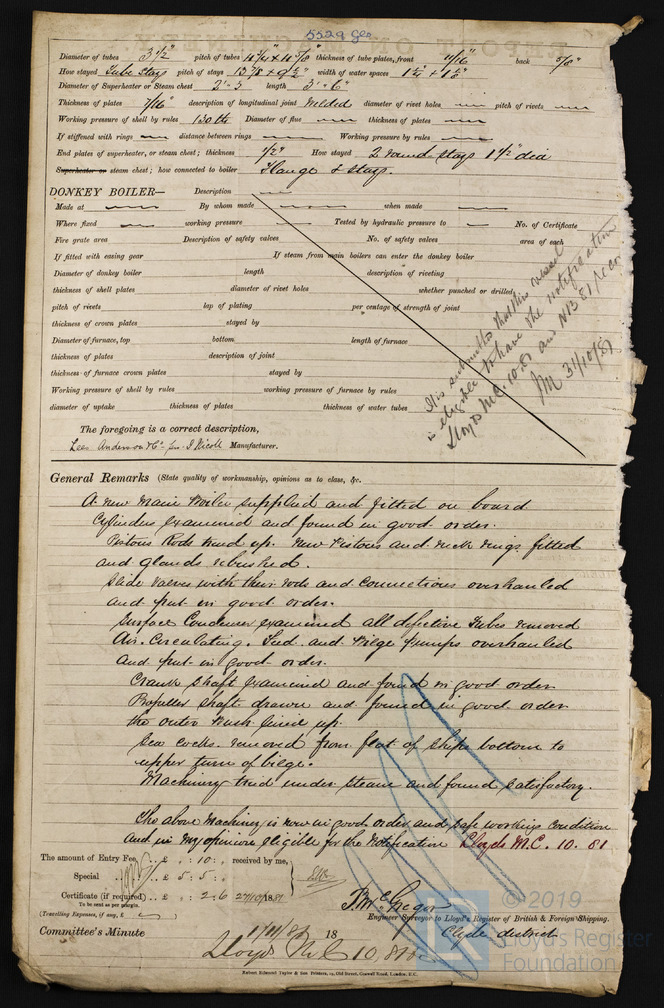 5529 Gls
Diameter of tubes 3 1/2" pitch of tubes thickness of tube plates, front 11/16" back 5/8"
How stayed Tube Stays pitch of stays 13 7/8 + 9 1/2" width of water spaces
Diameter of Superheater or Steam chest 2'-3 length 3'-6"
Thickness of plates 7/16" description of longitudinal joint Welded diameter of rivet holes — pitch of rivets —
Working pressure of shell by rules 130 lb Diameter of flue — thickness of plates —
If stiffened with rings — distance between rings — Working pressure by rules —
End plates of superheater, or steam chest; thickness 1/2" How stayed 2 round stays 1 1/2" dia
Superheater or steam chest; how connected to boiler Flange & Stays.
DONKEY BOILER— Description —
Made at — By whom made — when made —
Where fixed — working pressure — Tested by hydraulic pressure to — No. of Certificate
Fire grate area Description of safety valves No. of safety valves area of each
If fitted with easing gear If steam from main boilers can enter the donkey boiler
Diameter of donkey boiler length description of riveting
thickness of shell plates diameter of rivet holes whether punched or drilled
pitch of rivets lap of plating per centage of strength of joint
thickness of crown plates stayed by
Diameter of furnace, top bottom length of furnace
thickness of plates description of joint
thickness of furnace crown plates stayed by
Working pressure of shell by rules working pressure of furnace by rules
diameter of uptake thickness of plates thickness of water tubes
It is submitted that this vessel
is eligible to have the notification
Lloyds M.C. 10.81 and NB 81 recor
31/10/81
The foregoing is a correct description,
Lees Anderson & Co. per J Nicoll Manufacturer.
General Remarks (State quality of workmanship, opinions as to class, &c.
A new main Boiler supplied and fitted on board
Cylinders examined and found in good order.
Pistons Rods trued up. New Pistons and neck rings fitted
and glands rebushed.
Slide valves with their rods and connections overhauled
and put in good order.
Surface Condenser examined all defective Tubes removed
Air. Circulating. Feed. and Bilge pumps overhauled
and put in good order.
Crank shaft examined and found in good order
Propeller shaft drawn and found in good order
the outer bush lined up.
Sea cocks. removed from flat of ships bottom to
upper turn of bilge.
Machinery tried under steam and found satisfactory.
The above Machinery is now in good order and safe working condition
and in my opinion eligible for the notification Lloyds M.C. 10. 81
The amount of Entry Fee .. £ : 10 : received by me,
Special .. £ 5 : 5 :
Certificate (if required) .. £ : 2 : 6 27/10/1881
To be sent as per margin.
(Travelling Expenses, if any, £ )
J. McGregor
Engineer Surveyor to Lloyd's Register of British & Foreign Shipping.
Clyde district
Committee's Minute 18
Lloyds M C 10, 81
Robert Edmund Taylor & Son Printers, 19, Old Street, Goswell Road, London, E.C.
© 2019
Lloyd's Register
Foundation